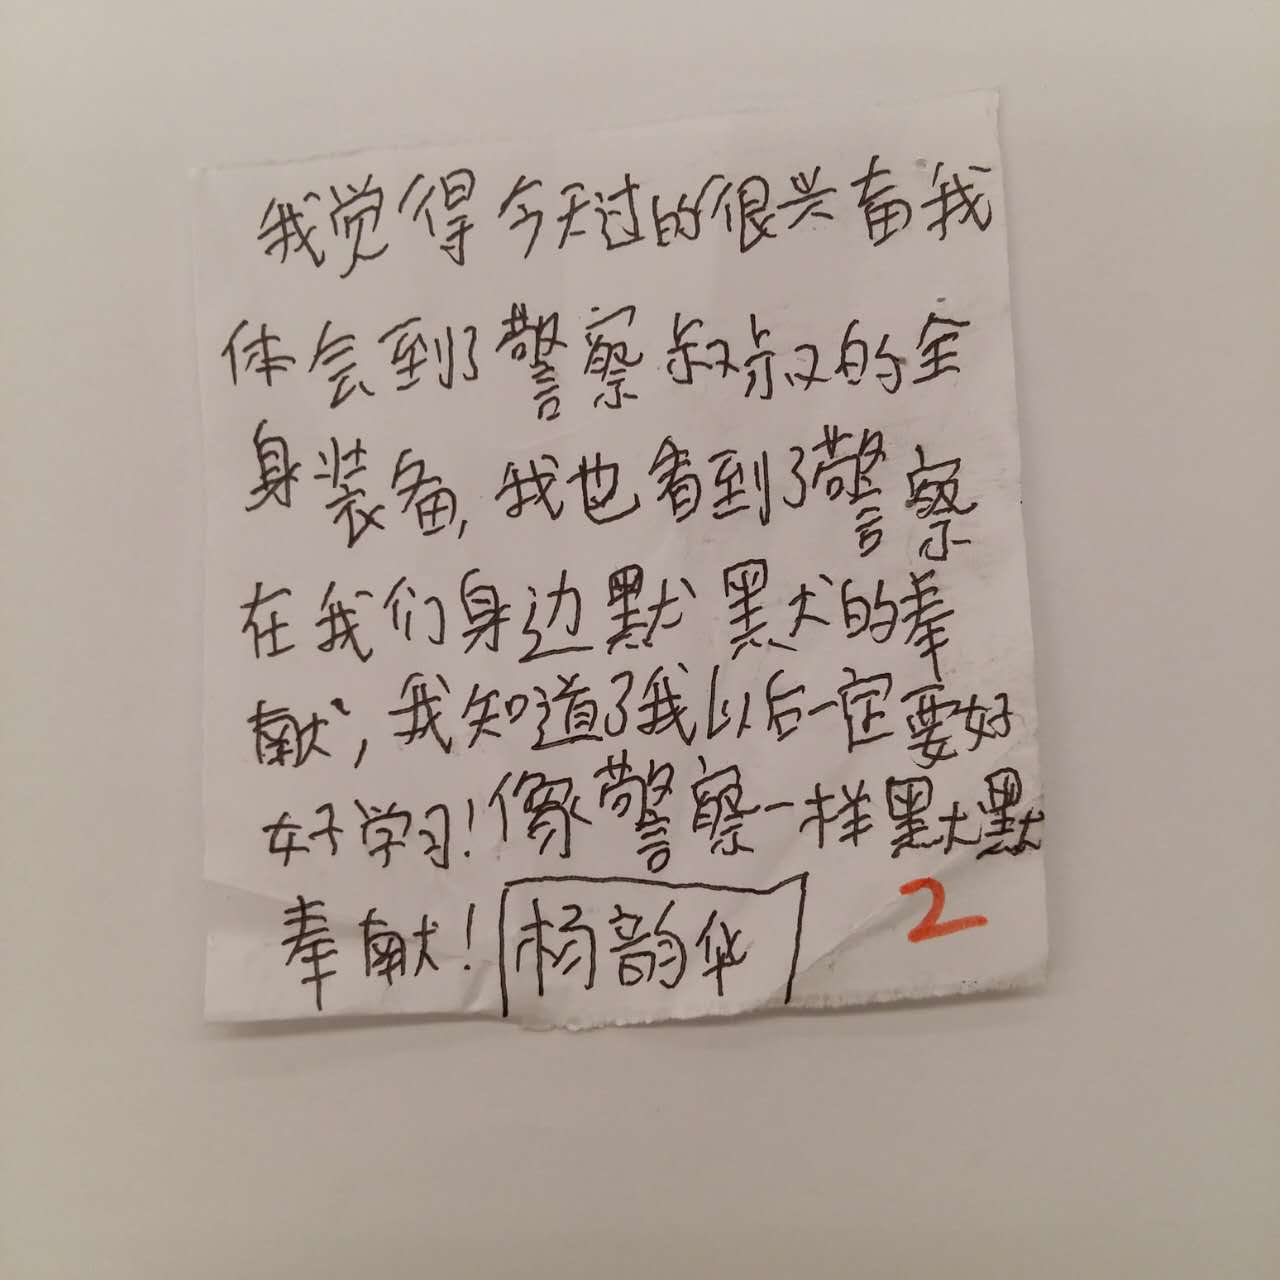 我觉得今天过的很兴奋我
体会到了警察叔叔的全
身装备,我也看到了警察
在我们身边默默的奉
献,我知道了我以后一定要好
好学习!像警察一样默默
奉献!杨韵华
2